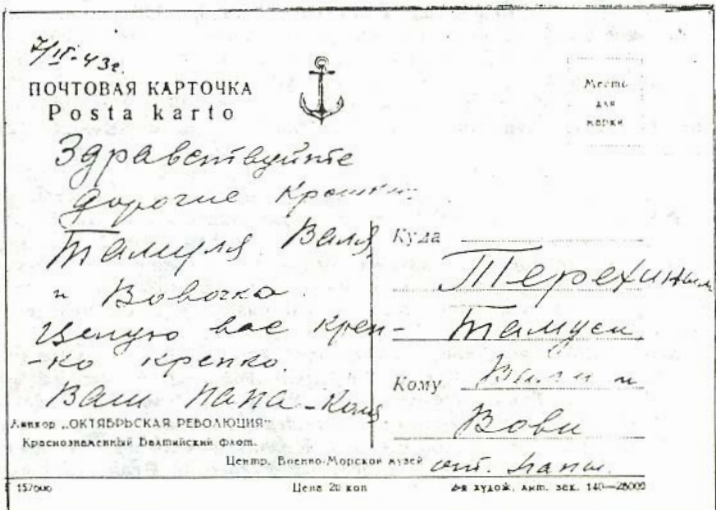 7/IV-43г.
ПОЧТОВАЯ КАРТОЧКА
Posta karto
Место
для
марки
Здравствуйте
дорогие крошки
Тамуля Валя,
и Вовочка.
Целую вас креп-
-ко крепко.
Ваш папа-Коля
Куда
Терехиным
Тамуси,
Кому Вали и
Вови
от папы.
Линкор „ОКТЯБРЬСКАЯ РЕВОЛЮЦИЯ"
Краснознаменный Балтийский флот.
Центр. Военно-Морской музей
Цена 20 коп
худож. лит. зак. 140—25000